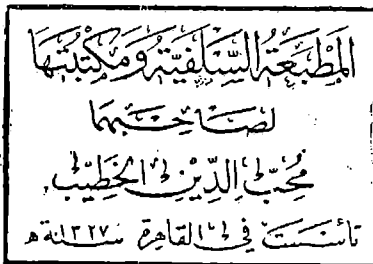 المَطْبَعَةُ السَّلَفِيَّةُ وَمَكْتَبَتُهَا
لصَاحِبِهَا
مُحِبّ الدِّين الخَطِيب
تأسَّسَتْ في القاهِرة سَنة ١٣٢٧ ه